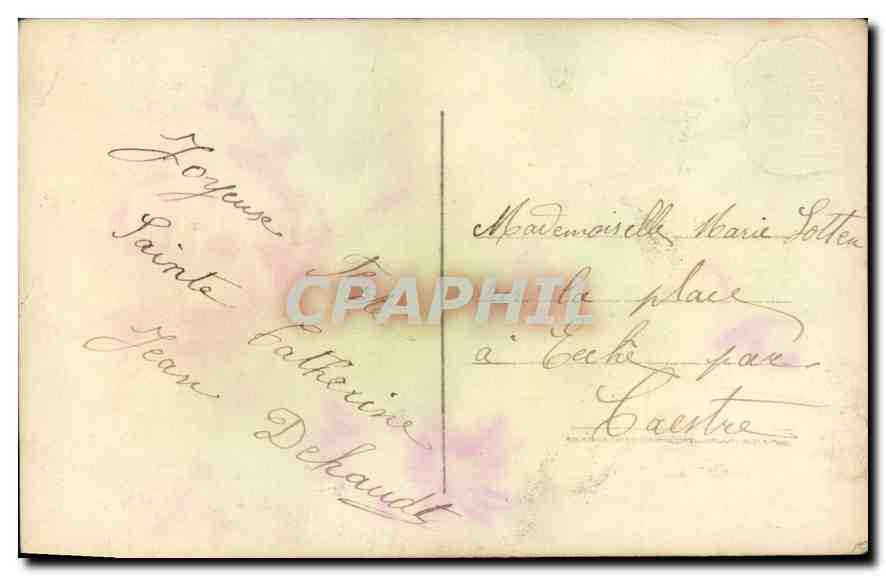 Joyeuse Fete
Sainte Catherine
Jean Dehaudt
Mademoiselle Marie Lotten
la place
à Eecke par
Caestre
CPAPHIL